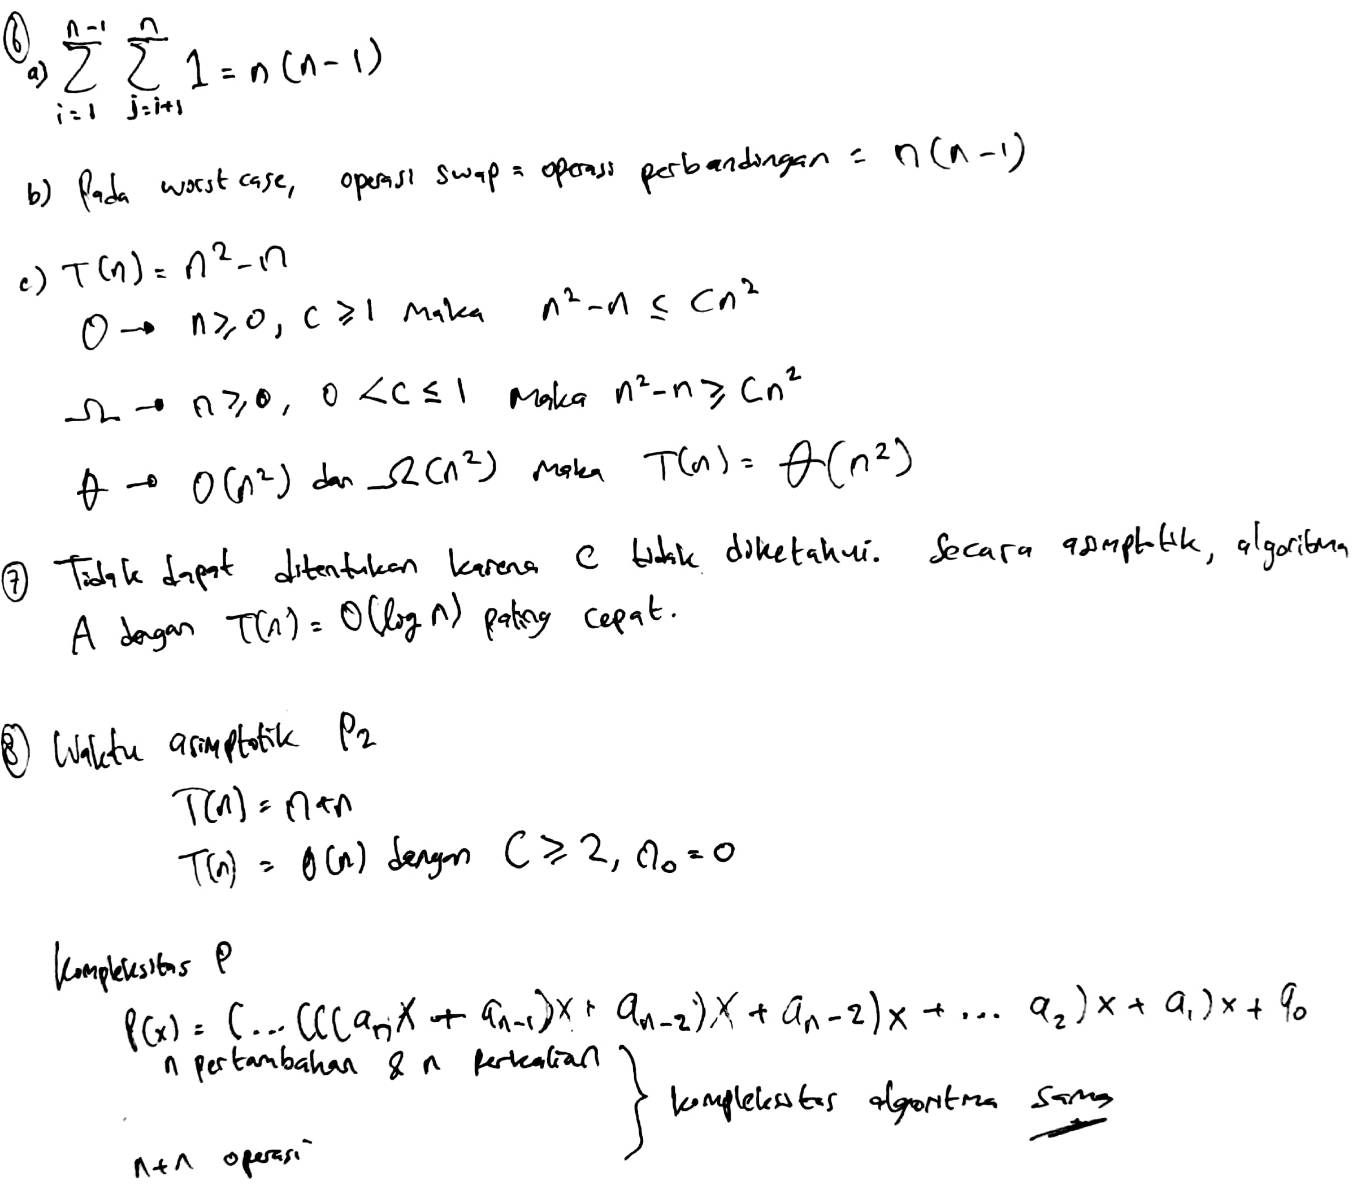 ⑥
a) n-1 ∑ i=1 n ∑ j=i+1 1 = n(n-1)
b) Pada worst case, operasi swap = operasi perbandingan = n(n-1)
c) T(n) = n² - n
O → n ≥ 0, C ≥ 1 Maka n² - n ≤ Cn²
Ω → n ≥ 0, 0 < C ≤ 1 Maka n² - n ≥ Cn²
θ → O(n²) dan Ω(n²) Maka T(n) = θ(n²)
⑦ Tidak dapat ditentukan karena C tidak diketahui. Secara asimptotik, algoritma
A dengan T(n) = O(log n) paling cepat.
⑧ Waktu asimptotik P₂
T(n) = n+n
T(n) = O(n) dengan C ≥ 2, n₀ = 0
Kompleksitas P
P(x) = (... ((((aₙX + aₙ₋₁)X + aₙ₋₂)X + aₙ₋₂)x + ... a₂)x + a₁)x + a₀
n pertambahan & n perkalian
} kompleksitas algoritma sama
n+n operasi